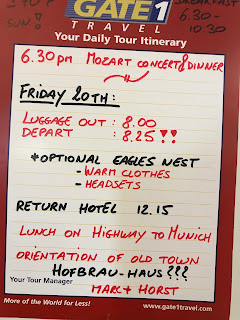 SUN!
BREAKFAST
6.30-
10.30
GATE 1
TRAVEL
Your Daily Tour Itinerary
6.30pm MOZART CONCERT & DINNER
FRIDAY 20TH:
LUGGAGE OUT: 8.00
DEPART : 8.25 !!
*OPTIONAL EAGLES NEST
- WARM CLOTHES
- HEADSETS
RETURN HOTEL 12.15
LUNCH ON HIGHWAY TO MUNICH
ORIENTATION OF OLD TOWN
HOFBRAU-HAUS???
Your Tour Manager
MARC + HORST
More of the World for Less!
www.gate1travel.com